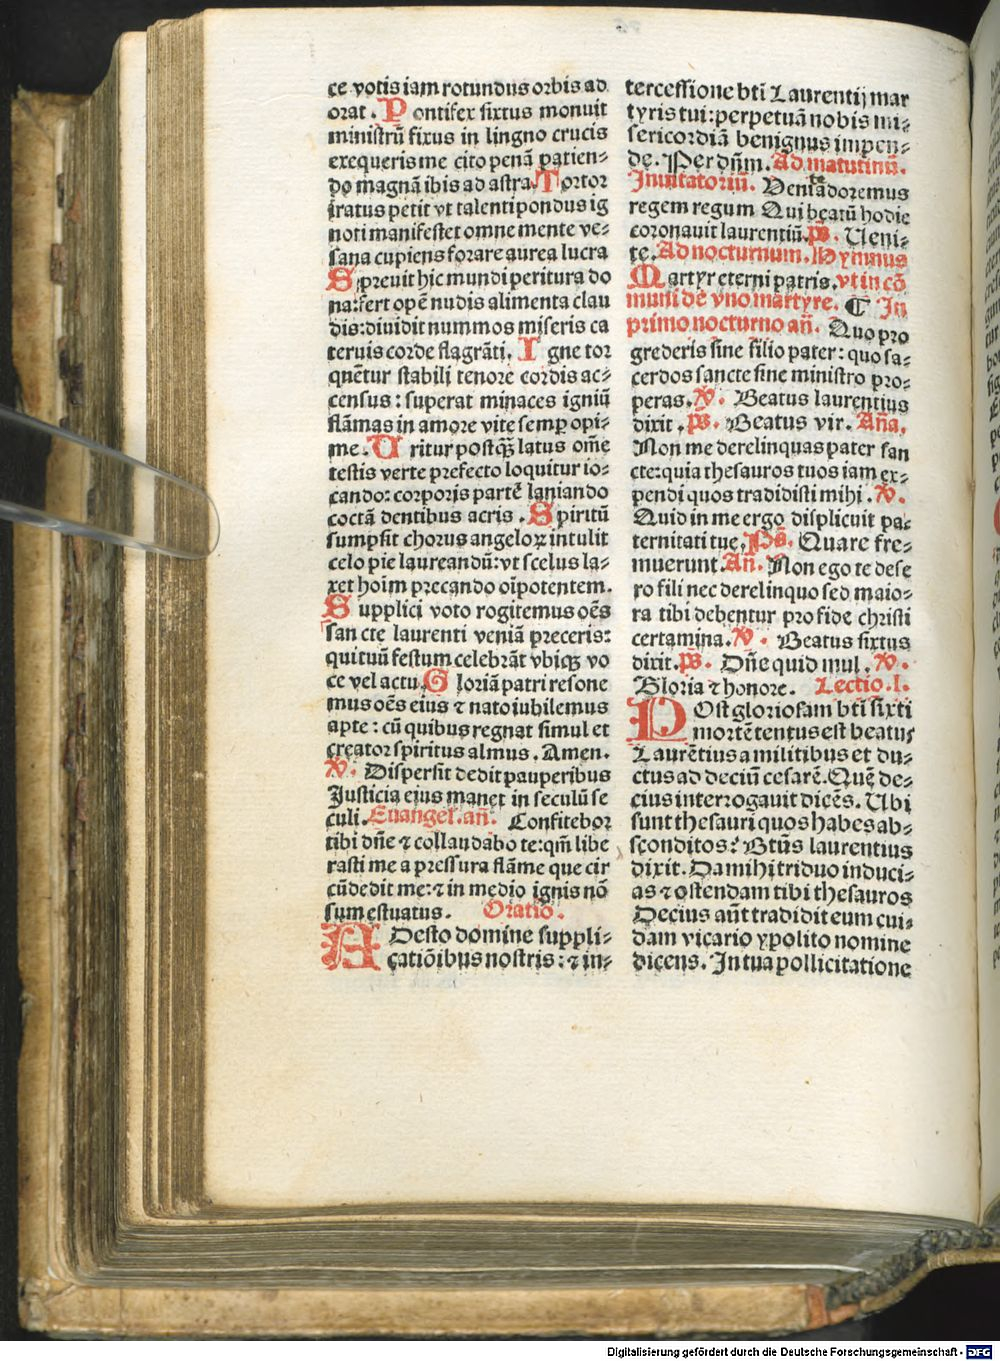 ce votis iam rotundus orbis ad
orat. Pontifex sixtus monuit
ministrũ fixus in lingno crucis
exequeris me cito penã patien-
do magnã ibis ad astra. Tortor
iratus petit vt talenti pondus ig
noti manifestet omne mente ve-
sana cupiens forare aurea lucra
Spreuit hic mundi peritura do
na: fert opẽ nudis alimenta clau
dis: diuidit nummos miseris ca
teruis corde flagrãti. Igne tor
quẽtur stabili tenore cordis ac-
census: superat minaces igniũ
flãmas in amore vite semp opi-
me. Uritur postq̃ latus om̃e
testis verte prefecto loquitur io-
cando: corporis partẽ laniando
coctã dentibus acris. Spiritũ
sumpsit chorus angeloꝝ intulit
celo pie laureandũ: vt scelus la-
xet hoĩm precando oĩpotentem.
Supplici voto rogitemus oẽs
sancte laurenti veniã preceris:
qui tuũ festum celebrãt vbiq̃ vo
ce vel actu. Gloriã patri resone
mus oẽs eius ⁊ nato iubilemus
apte: cũ quibus regnat simul et
creator spiritus almus. Amen.
V. Dispersit dedit pauperibus
Justicia eius manet in seculũ se
culi. Euangel. añ. Confitebor
tibi dñe ⁊ collaudabo te: qm̃ libe
rasti me a pressura flãme que cir
cũdedit me: ⁊ in medio ignis nõ
sum estuatus. Oratio.
ADesto domine suppli-
catiõibus nostris: ⁊ in-
tercessione bti Laurentij mar
tyris tui: perpetuã nobis mi-
sericordiã benignus impen-
de. Per dñm. Ad matutinũ.
Inuitatoriũ. Venite adoremus
regem regum Qui beatũ hodie
coronauit laurentiũ. ps. Ueni-
te. Ad nocturnum. Hymnus
Martyr eterni patris. vt in cõ
muni de vno martyre. ¶ In
primo nocturno añ. Quo pro
grederis sine filio pater: quo sa-
cerdos sancte sine ministro pro-
peras. V. Beatus laurentius
dixit. ps. Beatus vir. Aña.
Non me derelinquas pater san
cte: quia thesauros tuos iam ex-
pendi quos tradidisti mihi. V.
Quid in me ergo displicuit pa-
ternitati tue. Ps. Quare fre-
muerunt. Añ. Non ego te dese
ro fili nec derelinquo sed maio-
ra tibi debentur pro fide christi
certamina. V. Beatus sixtus
dixit. ps. Dñe quid mul. V.
Gloria ⁊ honore. Lectio. I.
POst gloriosam bti sixti
mortẽ tentus est beatus
Laurẽtius a militibus et du-
ctus ad deciũ cesarẽ. Quẽ de-
cius interrogauit dicẽs. Ubi
sunt thesauri quos habes ab-
sconditos? Btũs laurentius
dixit. Da mihi triduo induci-
as ⁊ ostendam tibi thesauros
Decius aũt tradidit eum cui-
dam vicario ypolito nomine
dicens. In tua pollicitatione
Digitalisierung gefördert durch die Deutsche Forschungsgemeinschaft - DFG